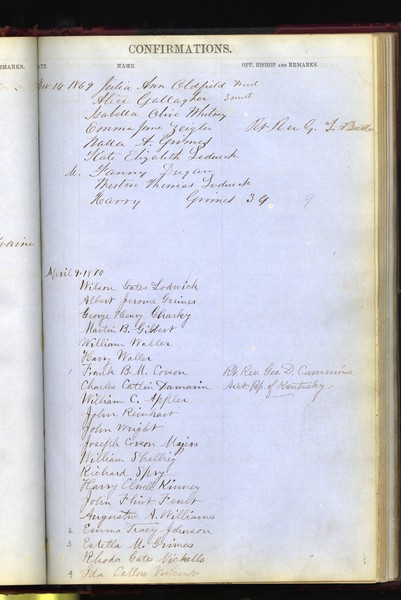 CONFIRMATIONS.
EMARKS.
DATE. NAME. OFF. BISHOP AND REMARKS.
Nov 14 1869 Julia Ann Oldfield
Alice Gallagher
Isabella Olive Whitney
Emma Jane Zeigler Rt Rev G. T.
Walla A. Grimes
Kate Elizabeth Lodwick
M. Fanny Degan
Weston Thomas Lodwick
Harry Grimes 39 9
vaine
April 9. 1870
Wilson Gates Lodwick
Albert Jerome Grimes
George Henry Sharkey
Martin B. Gilbert
William Waller
Harry Waller
1 Frank B. M. Corson Rt. Rev. Geo. D. Cummins
Charles Catlin Damarin Asst. Bp. of Kentucky.
William C. Appler
John Reinhart
John Wright
Joseph Corson Majors
William Shelbey
Richard Spry
Harry Olwell Kinney
John Flint
Augustus A. Williams
2 Emma Tracy Johnson
3 Estella M. Grimes
Rhoda Gates Nickells
4 Ida Callow Vincent